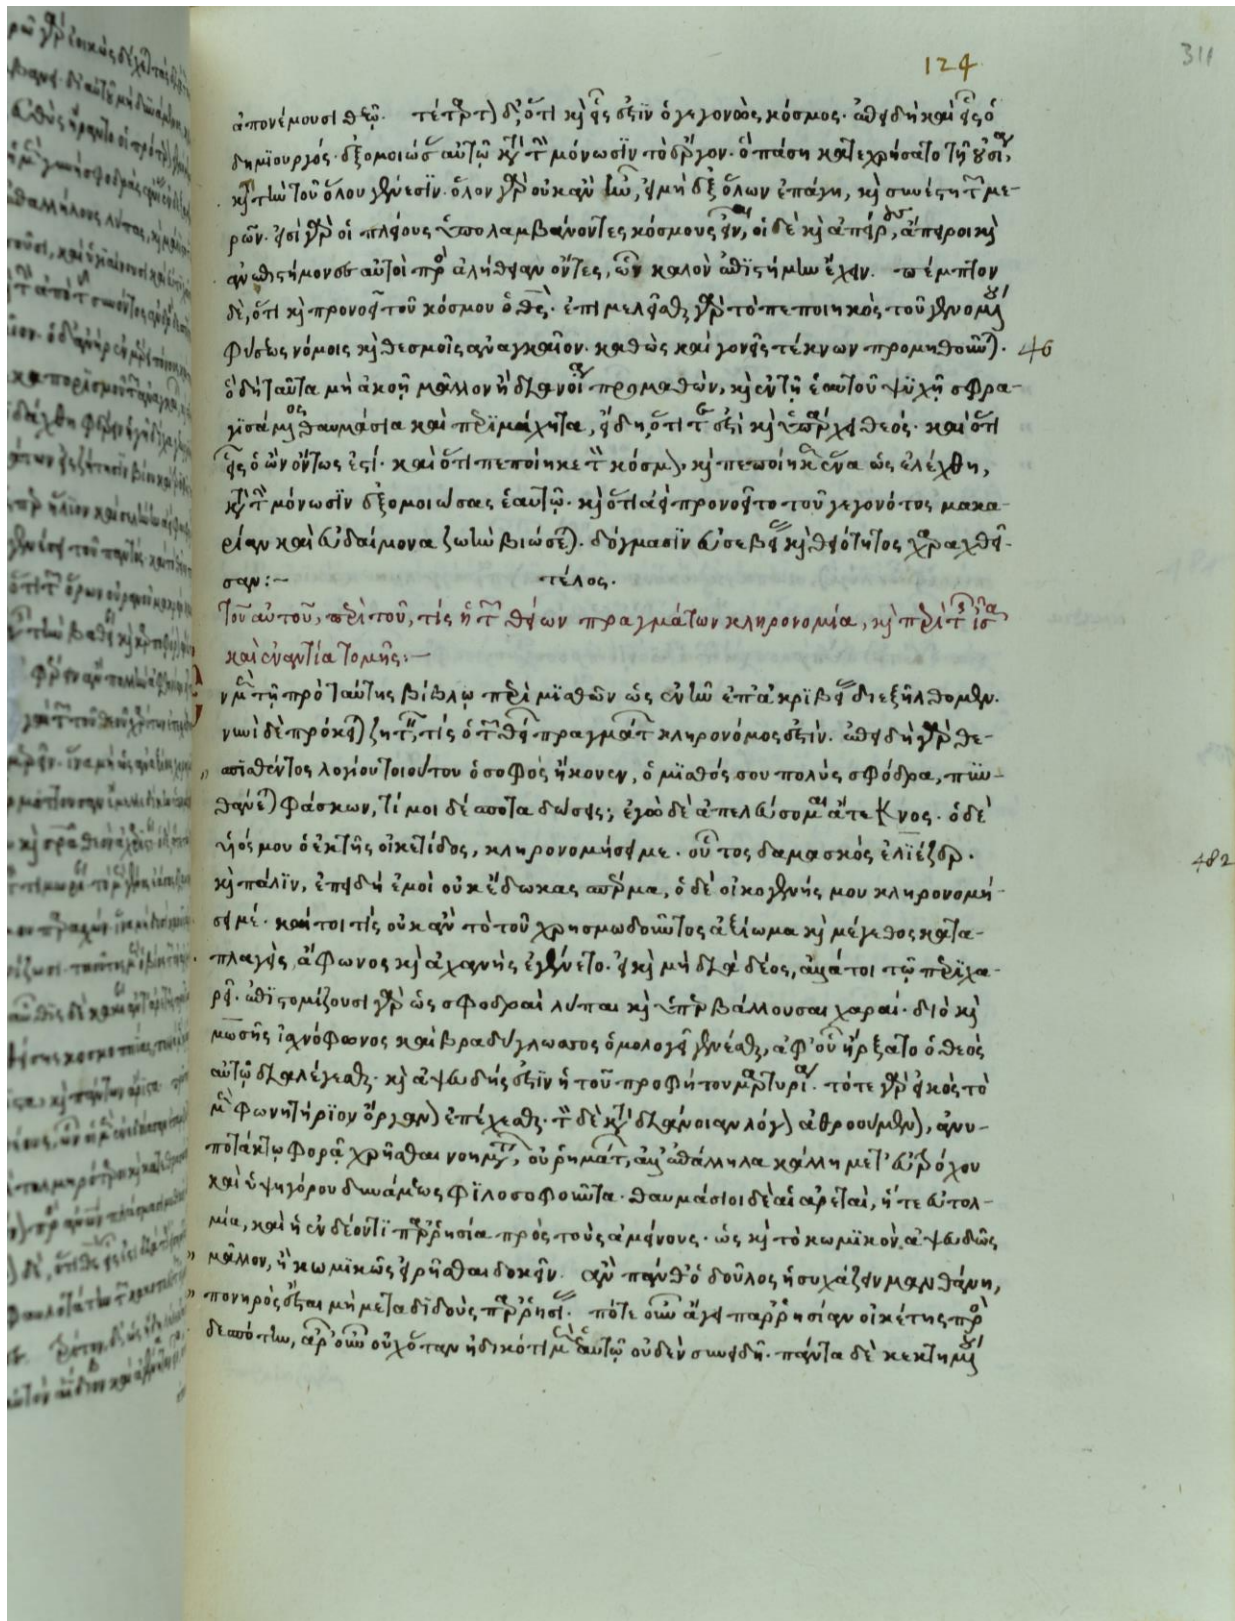 124
311
ἀπονέμουσι θεῷ. τέταρτον δ, ὅτι καὶ εἷς ἐστὶν ὁ γεγονὼς κόσμος. ἐπειδὴ καὶ εἷς ὁ
δημιουργός. ὁ ἐξομοιώσας αὐτῷ κατὰ τὴν μόνωσιν τὸ ἔργον. ὃ πάσῃ κατεχρήσατο τῇ οὐσίᾳ,
εἰς τὴν τοῦ ὅλου γένεσιν. ὅλον γὰρ οὐκ ἂν ἦν, εἰ μὴ ἐξ ὅλων ἐπάγη, καὶ συνέστη τῶν με-
ρῶν. εἰσὶ γὰρ οἱ πλείους ὑπολαμβάνοντες κόσμους εἶναι, οἱ δὲ καὶ ἀπείρους, ἄπειροι καὶ
ἀνεπιστήμονες αὐτοὶ πρὸς ἀλήθειαν ὄντες, ὧν καλὸν ἐπιστήμην ἔχειν. πέμπτον
δὲ, ὅτι καὶ προνοεῖ τοῦ κόσμου ὁ θεός. ἐπιμελεῖσθαι γὰρ τὸ πεποιηκὸς τοῦ γενομένου
φύσεως νόμοις καὶ θεσμοῖς ἀναγκαῖον. καθὼς καὶ γονεῖς τέκνων προμηθοῦνται. 46
ὁ δὴ ταῦτα μὴ ἀκοῇ μᾶλλον ἢ διανοίᾳ προμαθὼν, καὶ ἐν τῇ ἑαυτοῦ ψυχῇ σφρα-
γισάμενος θαυμάσια καὶ περιμάχητα, εἴδη, ὅτι τε ἐστὶ καὶ ὑπάρχει θεός. καὶ ὅτι
εἷς ὁ ὢν ὄντως ἐστί. καὶ ὅτι πεποίηκε τὸν κόσμον, καὶ πεποίηκεν ἕνα ὡς ἐλέχθη,
κατὰ τὴν μόνωσιν ἐξομοιώσας ἑαυτῷ. καὶ ὅτι ἀεὶ προνοεῖ τὸ τοῦ γεγονότος μακα-
ρίαν καὶ εὐδαίμονα ζωὴν βιώσεται. δόγμασιν εὐσεβείας καὶ θειότητος χαραχθεῖ-
σαν:- τέλος.
Τοῦ αὐτοῦ, περὶ τοῦ, τίς ἡ τῶν θείων πραγμάτων κληρονομία, καὶ περὶ τῆς εἰς ἴσα
καὶ ἐναντία τομῆς:—
ἐν μὲν τῇ πρὸ ταύτης βίβλῳ περὶ μισθῶν ὡς ἐνῆν ἐπ' ἀκριβείας διεξήλθομεν.
νυνὶ δὲ πρόκειται ζητεῖν, τίς ὁ τῶν θείων πραγμάτων κληρονόμος ἐστίν. ἐπειδὴ γὰρ θε-
σπισθέντος λογίου τοιούτου ὁ σοφὸς ἤκουεν, ὁ μισθός σου πολὺς σφόδρα, πυν-
θάνεται φάσκων, τί μοι δέσποτα δώσεις; ἐγὼ δὲ ἀπελεύσομαι ἄτεκνος. ὁ δὲ
υἱός μου ὁ ἐκ τῆς οἰκέτιδος, κληρονομήσει με. οὗτος δαμασκὸς ἐλιέζερ. 482
καὶ πάλιν, ἐπειδὴ ἐμοὶ οὐκ ἔδωκας σπέρμα, ὁ δὲ οἰκογενής μου κληρονομή-
σει μέ. καίτοι τίς οὐκ ἂν τὸ τοῦ χρησμωδοῦντος ἀξίωμα καὶ μέγεθος κατα-
πλαγεὶς, ἄφωνος καὶ ἀχανὴς ἐγένετο. εἰ καὶ μὴ διὰ δέος, ἀλλά τοι τῷ περιχα-
ρεῖ. ἐπιστομίζουσι γὰρ ὡς σφοδραὶ λύπαι καὶ ὑπερβάλλουσαι χαραί. διὸ καὶ
μωσῆς ἰσχνόφωνος καὶ βραδύγλωσσος ὁμολογεῖ γενέσθαι, ἀφ' οὗ ἤρξατο ὁ θεὸς
αὐτῷ διαλέγεσθαι. καὶ ἀψευδής ἐστὶν ἡ τοῦ προφήτου μαρτυρία. τότε γὰρ εἰκὸς τὸ
μὲν φωνητήριον ὄργανον ἐπέχεσθαι. τὸν δὲ κατὰ διάνοιαν λόγον ἀθρούμενον, ἀνυ-
ποτάκτῳ φορᾷ χρῆσθαι νοημάτων, οὐ ῥημάτων, ἀλλ' ἐπάλληλα κάλλη μετ' εὐτρόχου
καὶ ὑψηγόρου δυνάμεως φιλοσοφοῦντα. θαυμάσιοι δὲ αἱ ἀρεταὶ, ἥ τε εὐτολ-
μία, καὶ ἡ ἐν δέοντι παρρησία πρὸς τοὺς ἀμείνους. ὡς καὶ τὸ κωμικὸν ἀψευδῶς
μᾶλλον, ἢ κωμικῶς εἰρῆσθαι δοκεῖν. ἂν πάνθ' ὁ δοῦλος ἡσυχάζειν μανθάνῃ,
πονηρὸς ἔσται μὴ μεταδιδοὺς παρρησίας. πότε οὖν ἄγει παρρησίαν οἰκέτης πρὸς
δεσπότην, ἆρ' οὖν οὐχ ὅταν ἠδικότι μὲν ἑαυτῷ οὐδὲν συνειδῇ. πάντα δὲ κεκτημένου